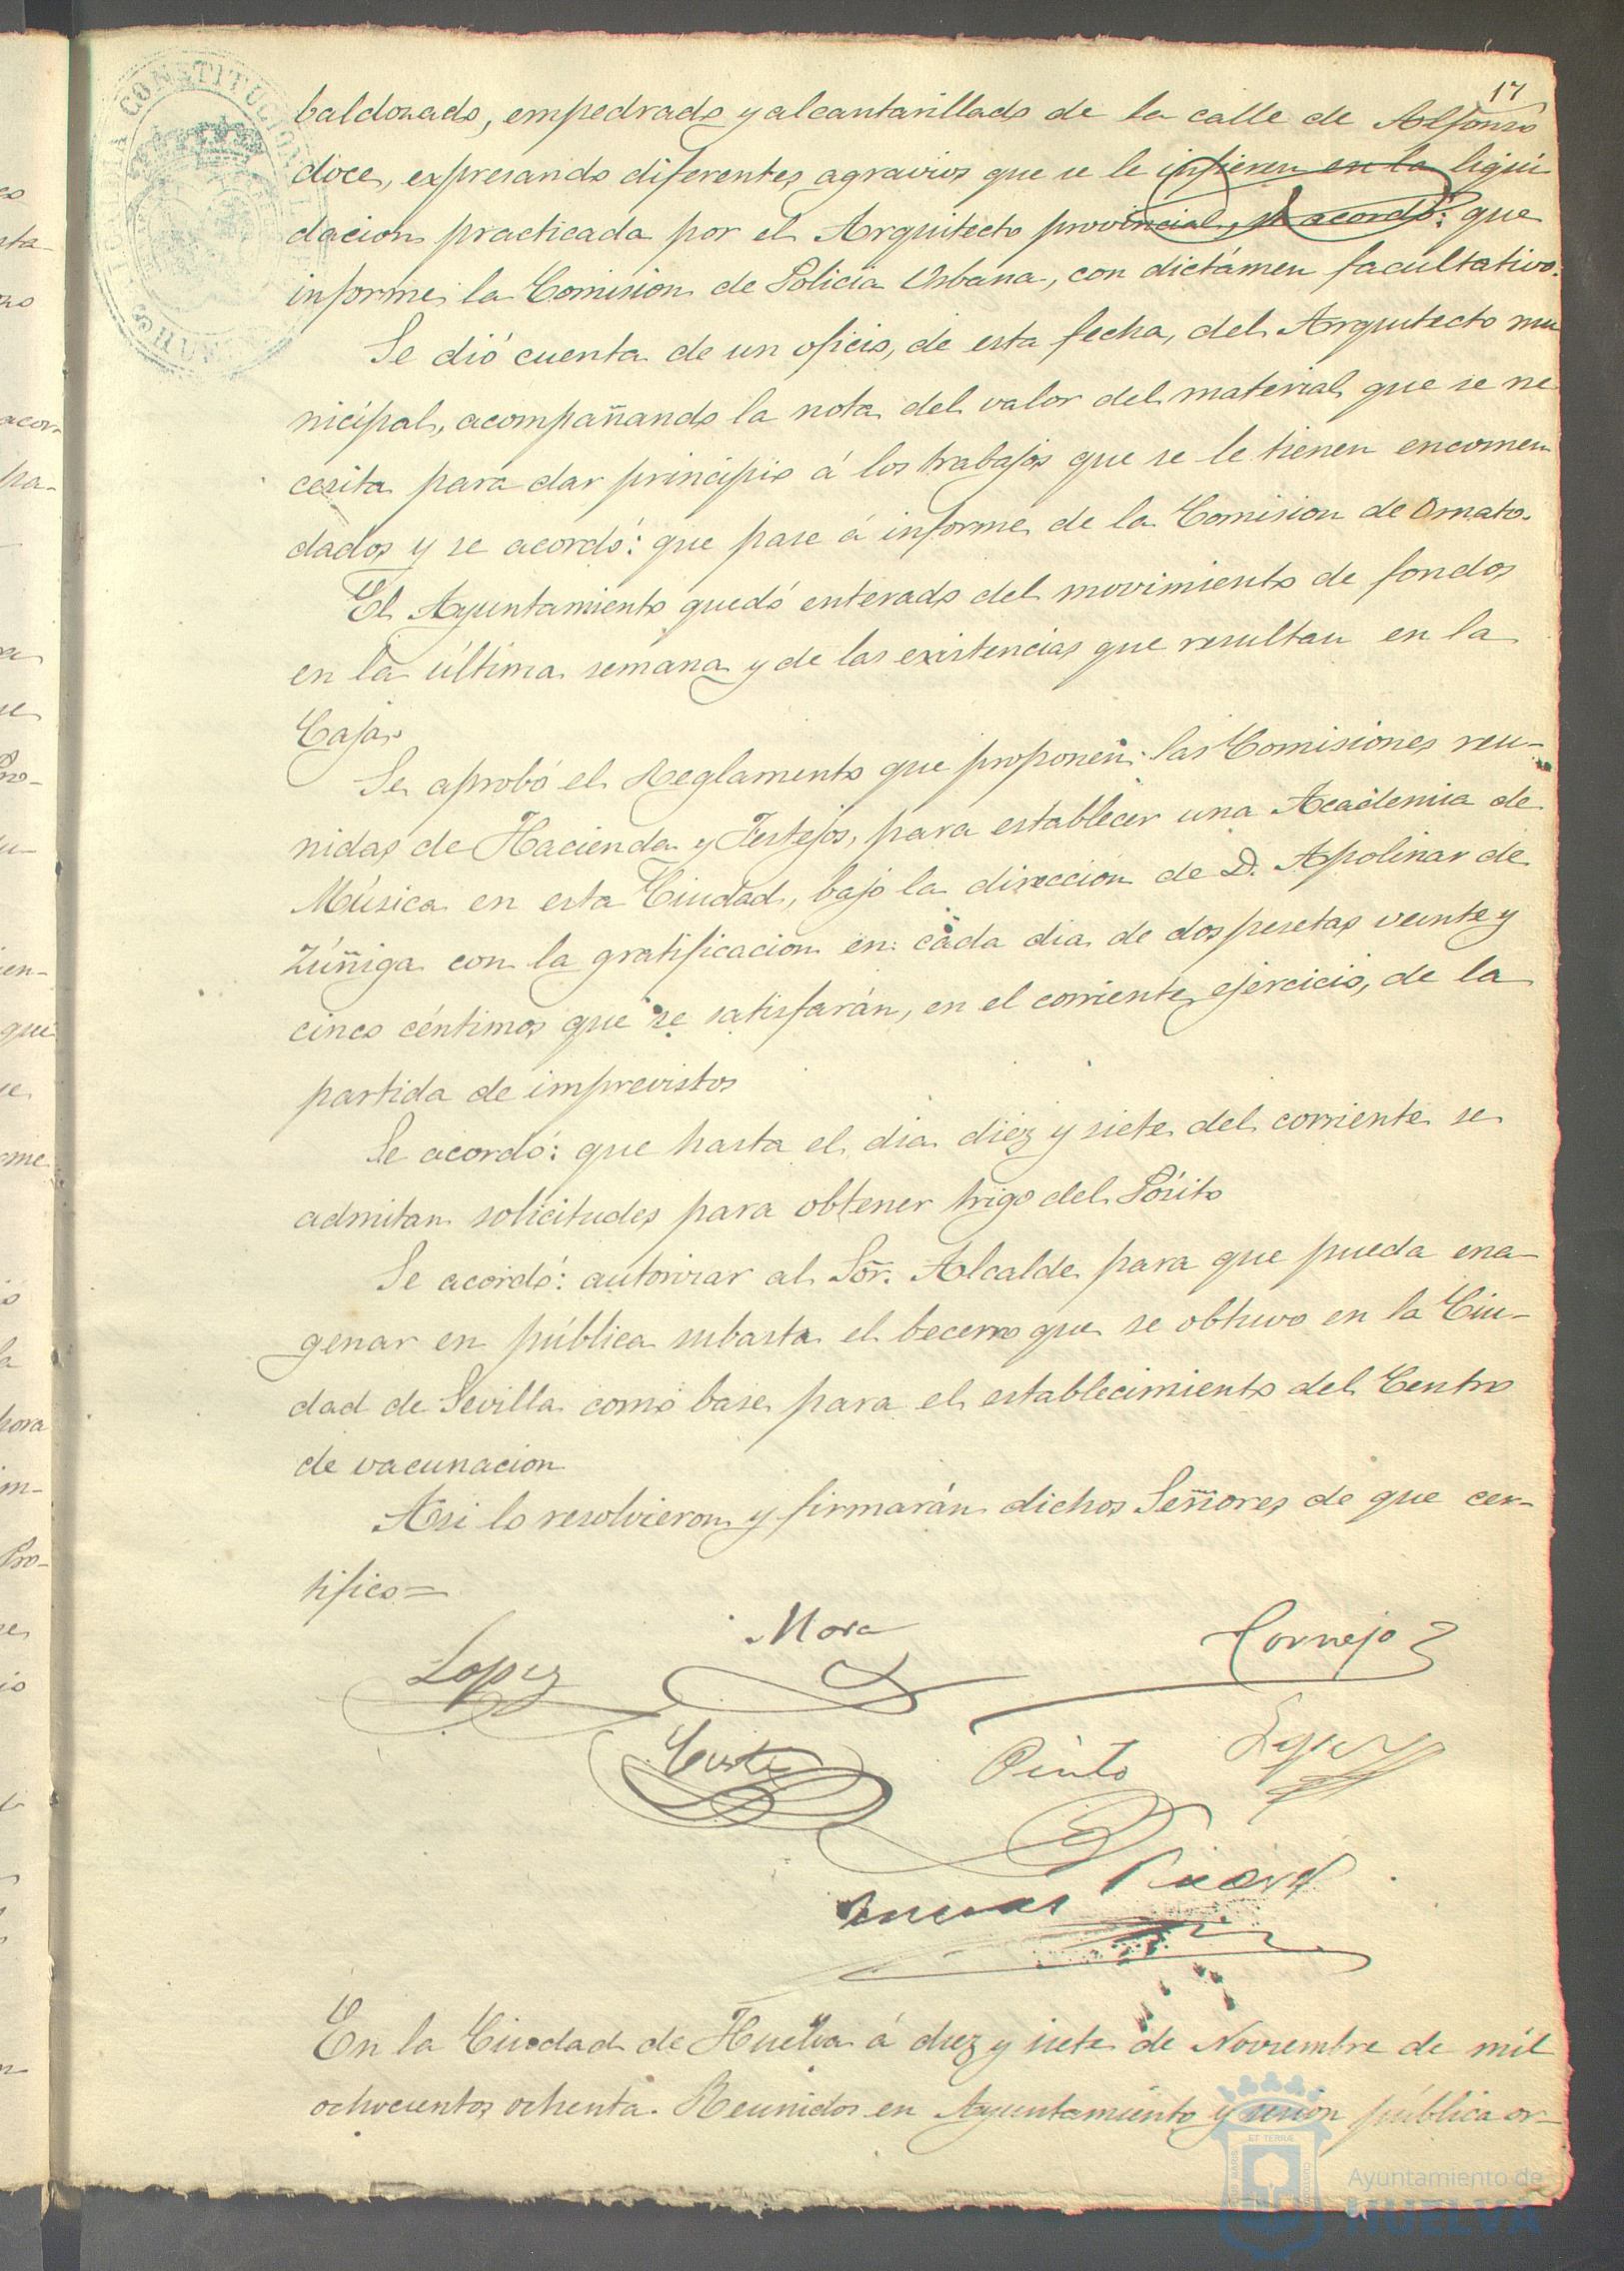 17
baldosado, empedrado y alcantarillado de la calle de Alfonso
doce, expresando diferentes agravios que se le infieren en la liqui
dacion practicada por el Arquitecto provincial, se acordó: que
informe la Comision de Policia Urbana, con dictámen facultativo.
Se dió cuenta de un oficio, de esta fecha, del Arquitecto mu
nicipal, acompañando la nota del valor del material que se ne
cesita para dar principio á los trabajos que se le tienen encomen
dados y se acordó: que pase á informe de la Comision de Ornato.
El Ayuntamiento quedó enterado del movimiento de fondos
en la última semana y de las existencias que resultan en la
Caja.
Se aprobó el Reglamento que proponen las Comisiones reu-
nidas de Hacienda y Festejos, para establecer una Academia de
Música en esta Ciudad, bajo la direccion de D. Apolinar de
Zúñiga con la gratificacion en cada dia de dos pesetas veinte y
cinco céntimos que se satisfarán, en el corriente ejercicio, de la
partida de imprevistos
Se acordó: que hasta el dia diez y siete del corriente se
admitan solicitudes para obtener trigo del Pósito
Se acordó: autorizar al Sor. Alcalde para que pueda ena-
genar en pública subasta el becerro que se obtuvo en la Ciu-
dad de Sevilla como base para el establecimiento del Centro
de vacunacion
Asi lo resolvieron y firmarán dichos Señores de que cer-
tifico=
Lopez Mora Cornejo
Pinto Lopez
En la Ciudad de Huelva á diez y siete de Noviembre de mil
ochocientos ochenta. Reunidos en Ayuntamiento y sesion pública or-
Ayuntamiento de
HUELVA